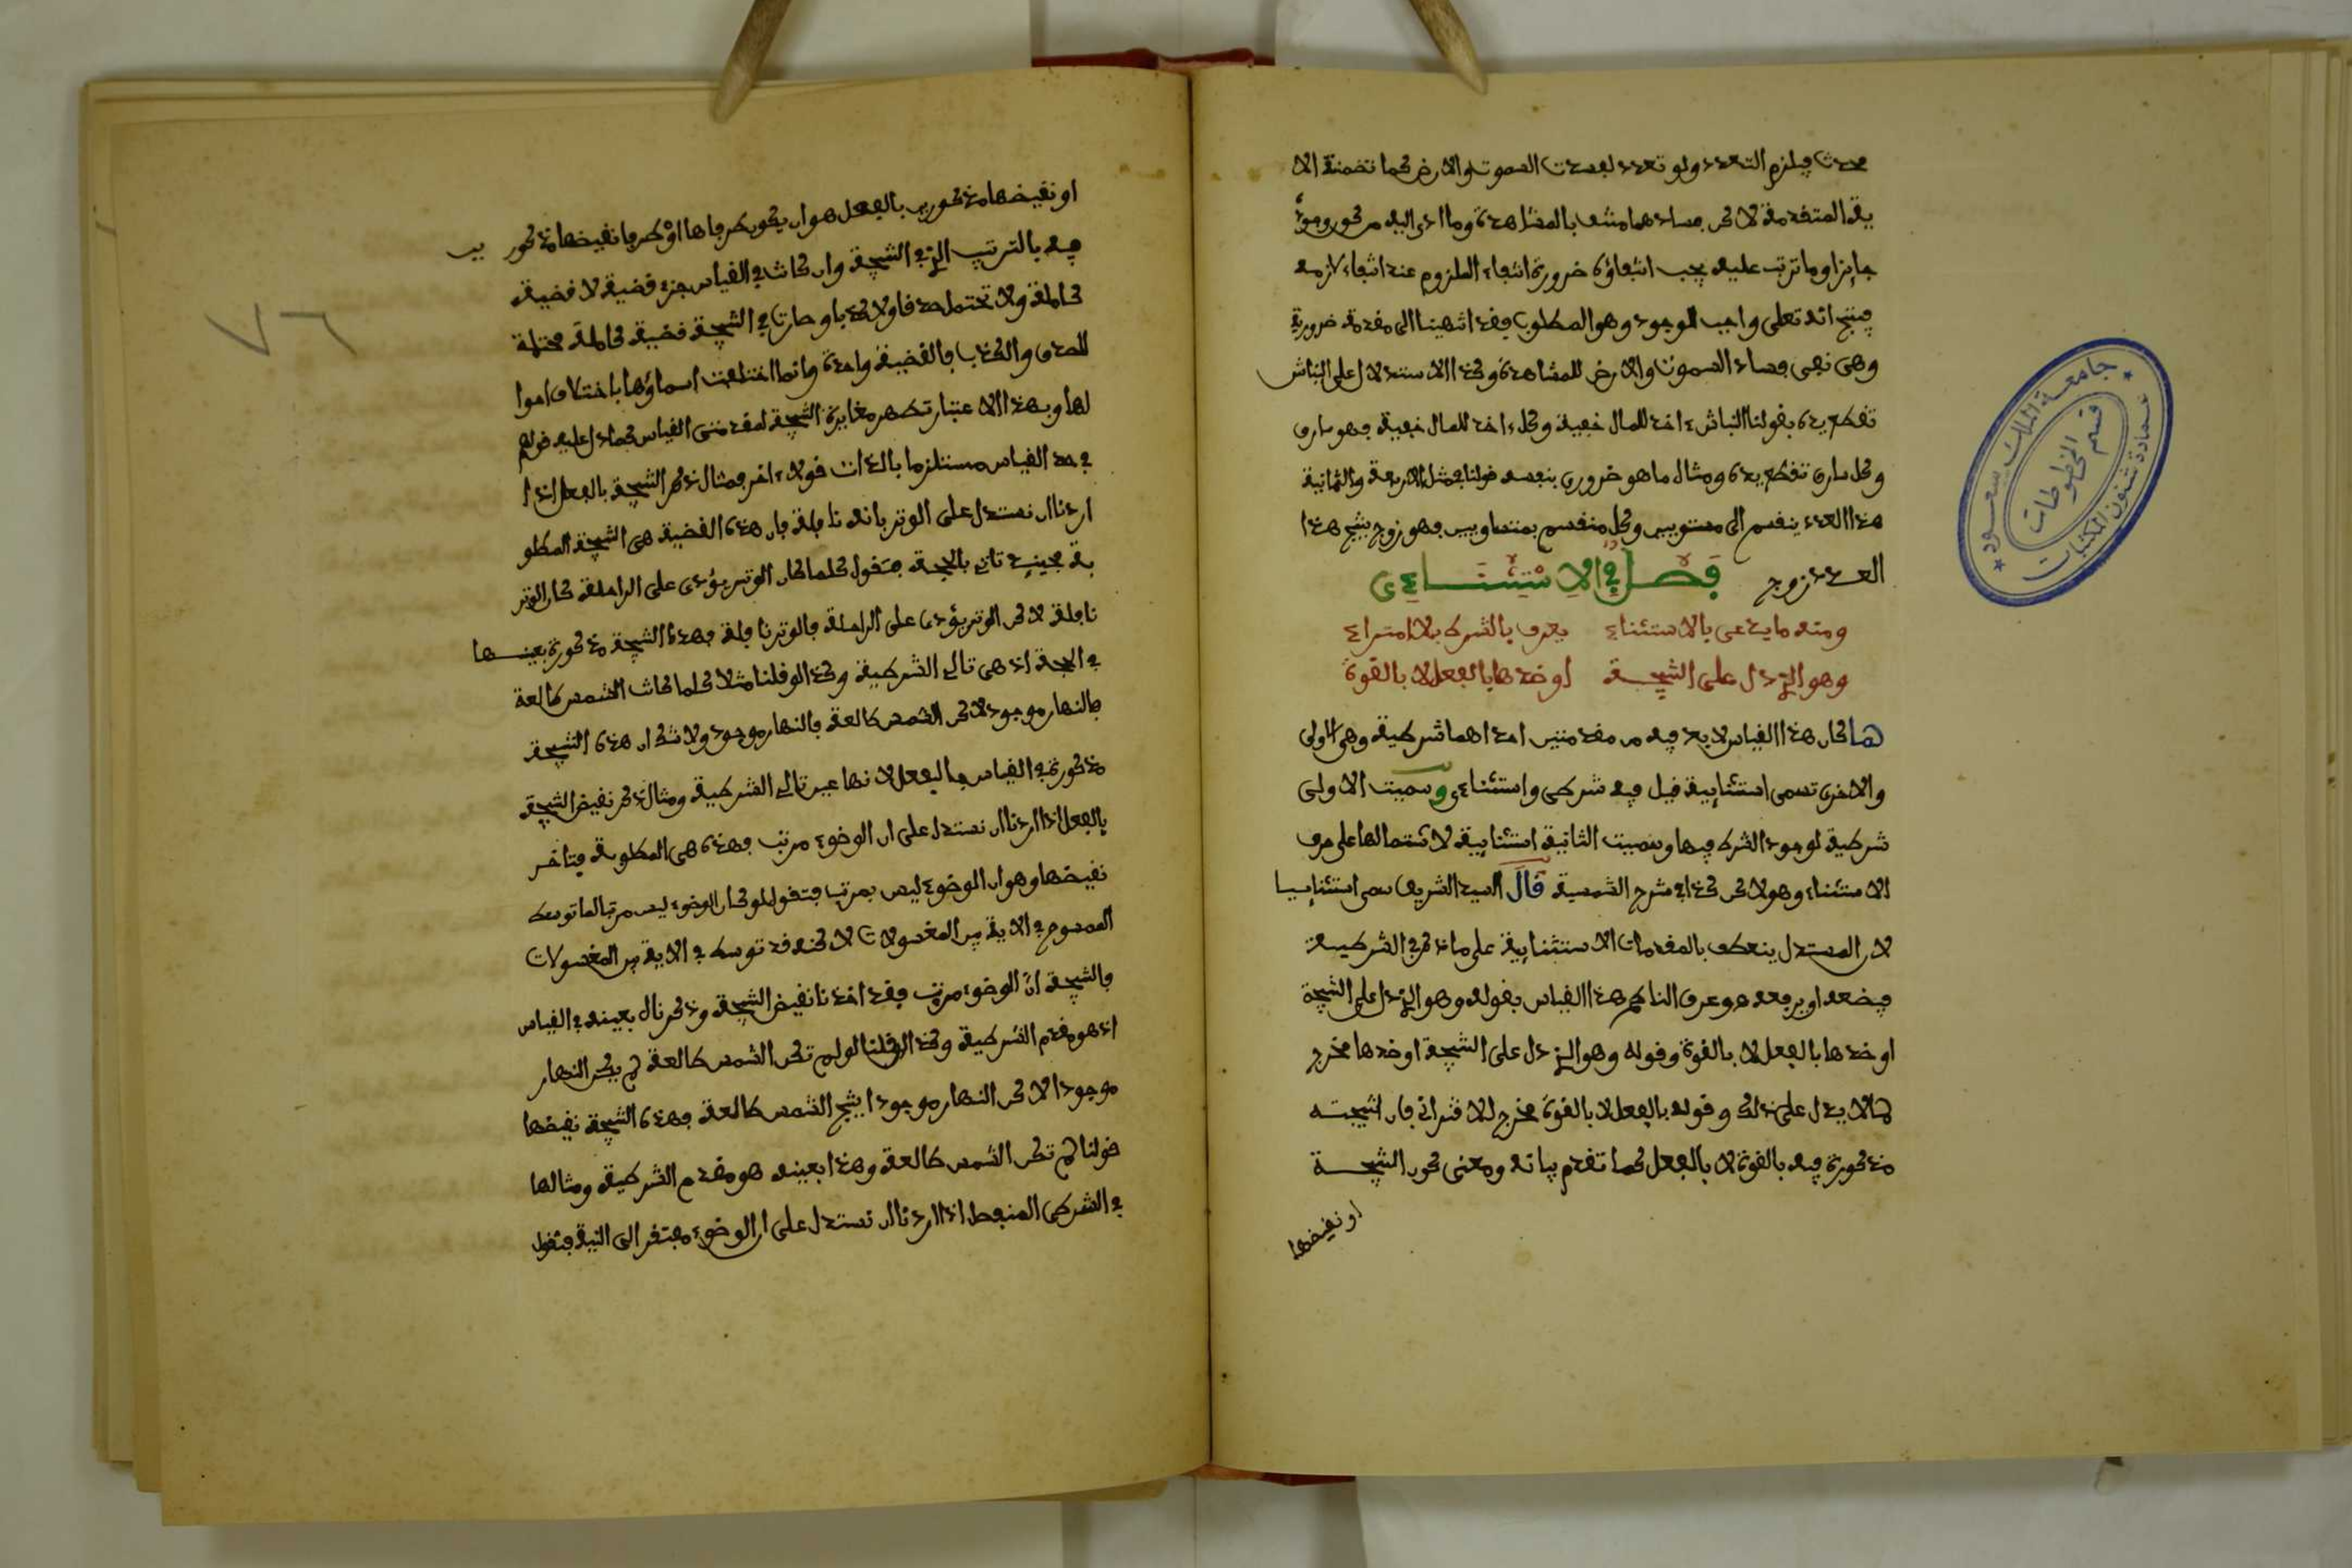 محدث فيلزم التعدد ولو تعدد لفسدت السموت والارض كما تضمنته الا
ية المتقدمة لاكن فسادهما منتف بالمشاهدة وما ادى اليه من كون موجد
جايزا وما ترتب عليه يجب انتفاؤه ضرورة انتفاء الملزوم عند انتفاء لازمه
فينتج انه تعلى واجب الوجود وهو المطلوب فقد انتهينا الى مقدمة ضرورية
وهى نفى فساد السموت والارض للمشاهدة وكذا الاستدلال على النباش
تقطع يده بقولنا النباش ءاخذ للمال خفية وكل ءاخذ للمال خفية فهو سارق
وكل سارق تقطع يده ومثال ما هو ضروري بنفسه قولنا في مثل الاربعة والثمانية
هذا العدد ينقسم الى مستويين وكل منقسم بمتساويين فهو زوج ينتج هذا
العدد زوج فصل في الاستثناءى
ومنه ما يدعى بالاستثناء يعرف بالشرط بلا امتراء
وهو الذي دل على النتيجة او ضدها بالفعل لا بالقوة
لما كان هذا القياس لا بد فيه من مقدمتين احداهما شرطية وهى الاولى
والاخرى تسمى استثنايية قيل فيه شرطى واستثناءى وسميت الاولى
شرطية لوجود الشرط فيها وسميت الثانية استثنايية لاشتمالها على حرف
الاستثناء وهو لاكن كذا في شرح الشمسية قال السيد الشريف سمى استثناييا
لان المستدل ينعطف بالمقدمات الاستثنايية على ما ذكر في الشرطية
فيضعه او يرفعه وعرف الناظم هذا القياس بقوله وهو الذي دل على النتيجة
او ضدها بالفعل لا بالقوة وقوله وهو الذي دل على النتيجة او ضدها مخرج
لما لا يدل على ذلك وقوله بالفعل لا بالقوة مخرج للاقتراني فان نتيجته
مذكورة فيه بالقوة لا بالفعل كما تقدم بيانه ومعنى كون النتيجة
او نقيضها
او نقيضها مذكورين بالفعل هو ان يكون طرفاها او طرفا نقيضها مذكورين
فيه بالترتيب الذي في النتيجة وان كانت في القياس جزء قضية لا قضية
كاملة ولا تحتمل صدقا ولا كذبا وصارت في النتيجة قضية كاملة محتملة
للصدق والكذب فالقضية واحدة وانما اختلفت اسماؤها باختلاف احوا
لها وبهذا الاعتبار تظهر مغايرة النتيجة لمقدمتى القياس كما دل عليه قولهم
في حد القياس مستلزما بالذات قولا ءاخر فمثال ذكر النتيجة بالفعل اذا
اردنا ان نستدل على الوتر بانه نافلة فان هذه القضية هى النتيجة المطلو
بة فحينيذ تاتي بالحجة فتقول كلما كان الوتر يؤدى على الراحلة كان الوتر
نافلة لاكن الوتر يؤدى على الراحلة فالوتر نافلة فهذه النتيجة مذكورة بعينها
في الحجة اذ هى تالي الشرطية وكذا لو قلنا مثلا كلما كانت الشمس طالعة
فالنهار موجود لاكن الشمس طالعة فالنهار موجود ولا شك ان هذه النتيجة
مذكورة في القياس بالفعل لانها عين تالي الشرطية ومثال ذكر نقيض النتيجة
بالفعل اذا اردنا ان نستدل على ان الوضوء مرتب فهذه هى المطلوبة فيتاخر
نقيضها وهو ان الوضوء ليس بمرتب فتقول لو كان الوضوء ليس مرتبا لما توسط
الممسوح في الاية بين المغسولات لاكنه قد توسط في الاية بين المغسولات
فالنتيجة ان الوضوء مرتب فقد اخذنا نقيض النتيجة وذكرناه بعينه في القياس
اذ هو مقدم الشرطية وكذا لو قلنا لو لم تكن الشمس طالعة لم يكن النهار
موجودا لاكن النهار موجود ينتج الشمس طالعة فهذه النتيجة نقيضها
قولنا لم تكن الشمس طالعة وهذا بعينه هو مقدم الشرطية ومثالها
في الشرطى المنفصل اذا اردنا ان نستدل على ان الوضوء مفتقر الى النية فنقول
٧٦
جامعة الملك سعود
قسم المخطوطات
عمادة شئون المكتبات